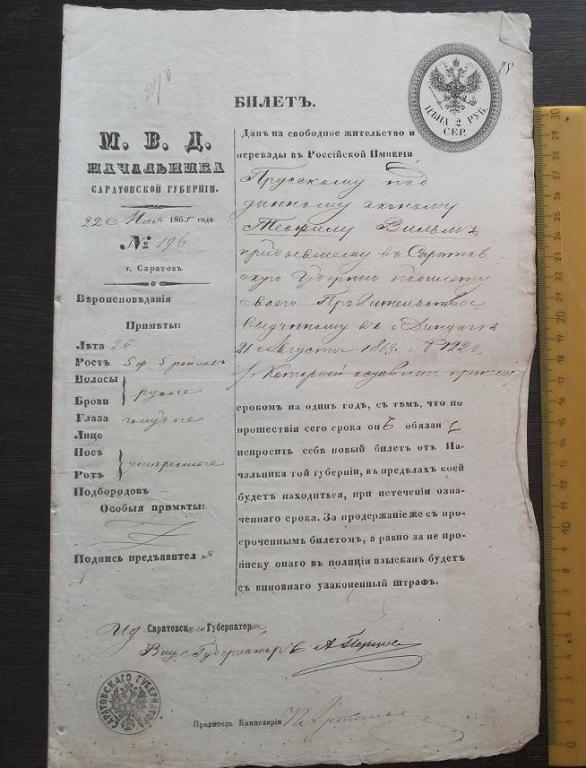 БИЛЕТЪ.
ЦѢНА 2 РУБ. СЕР.
М. В. Д.
НАЧАЛЬНИКА
САРАТОВСКОЙ ГУБЕРНІИ.
22 Мая 1865 года.
№ 196
г. Саратовъ.
Вѣроисповѣданія
Примѣты:
Лѣта
Ростъ 5 ф 5
Волосы
Брови
русые
Глаза голубые
Лице
Носъ
Ротъ
умѣренные
Подбородокъ
Особыя примѣты:
Подпись предъявителя
Данъ на свободное жительство и
переѣзды въ Россійской Имперіи
Прусскому под
данному
Вильмъ
прибывшему въ Саратов
скую Губернію
своего Правительства
выданному въ г. Данцигѣ
21 Августа 1863. №
срокомъ на одинъ годъ, съ тѣмъ, что по
прошествіи сего срока онъ обязан
испросить себѣ новый билетъ отъ На-
чальника той губерніи, въ предѣлахъ коей
будетъ находиться, при истеченіи озна-
ченнаго срока. За продержаніе же съ про-
сроченнымъ билетомъ, а равно за не про-
писку онаго въ полиціи взысканъ будетъ
съ виновнаго узаконенный штрафъ.
Ид Саратовскаго Губернатора,
Вице Губернаторъ
САРАТОВСКАГО ГУБЕРНАТОРА
Правитель Канцеляріи
0 1 2 3 4 5 6 7 8 9 10 11 12 13 14 15 16 17 18 19 20 21 22 23 24 25 26 27 28 29 30